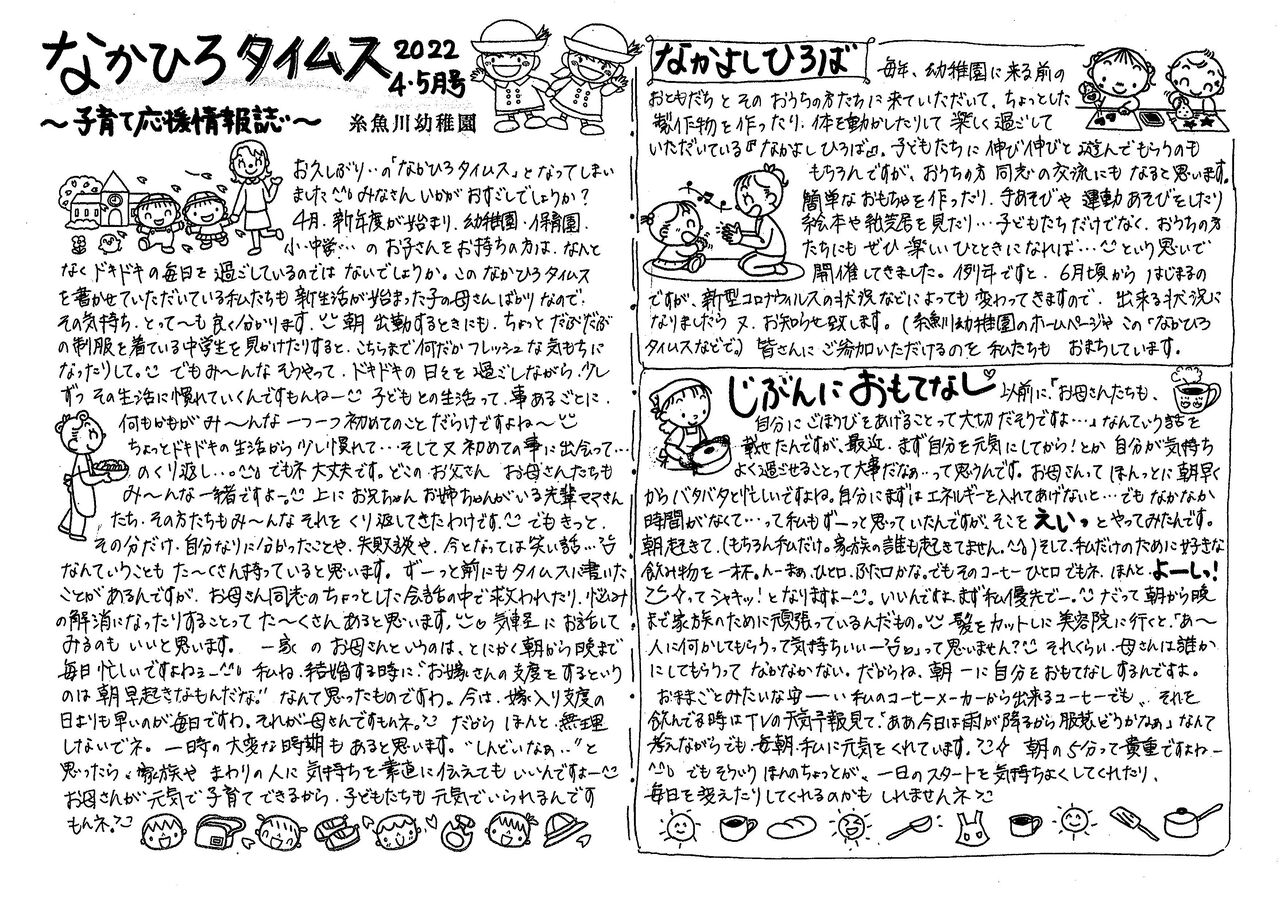 なかひろタイムス 2022 4・5月号
～子育て応援情報誌～ 糸魚川幼稚園
お久しぶり‥の「なかひろタイムス」となってしまい
ました みなさん いかがおすごしでしょうか？
4月、新年度が始まり、幼稚園・保育園、
小・中学… のお子さんをお持ちの方は、なんと
なくドキドキの毎日を過ごしているのではないでしょうか。このなかひろタイムス
を書かせていただいている私たちも新生活が始まった子の母さんばかりなので、
その気持ち、とって～も良く分かります。朝 出勤するときにも、ちょっとだぶだぶ
の制服を着ている中学生を見かけたりすると、こちらまで何だかフレッシュな気もちに
なったりして。でもみ～んな そうやって、ドキドキの日々を過ごしながら、少し
ずつその生活に慣れていくんですもんねー 子どもとの生活って、事あるごとに、
何もかもがみ～んな 一つ一つ初めてのことだらけですよね～
ちょっとドキドキの生活から少し慣れて…そして又初めての事に出会って…
のくり返し…。でもネ大丈夫です。どこのお父さん お母さんたちも
み～んな一緒ですよー 上にお兄ちゃんお姉ちゃんがいる先輩ママさん
たち、その方たちもみ～んなそれをくり返してきたわけです。でもきっと、
その分だけ、自分なりに分かったことや、失敗談や、今となっては笑い話…
なんていうことも た～くさん持っていると思います。ずーっと前にもタイムスに書いた
ことがあるんですが、お母さん同志のちょっとした会話の中で救われたり、悩み
の解消になったりすることって た～くさんあると思います。気軽にお話して
みるのもいいと思います。 一家のお母さんというのは、とにかく朝から晩まで
毎日忙しいですよねぇー 私ね、結婚する時に“お嫁さんの支度をするという
のは朝早起きなもんだな”なんて思ったものですわ。今は、嫁入り支度の
日よりも早いのが毎日ですわ。それが母さんですもんネ。だから ほんと、無理
しないでネ。一時の大変な時期もあると思います。“しんどいなぁ‥”と
思ったら、家族や まわりの人に気持ちを素直に伝えてもいいんですよー
お母さんが元気で子育てできるから、子どもたちも元気でいられるんです
もんネ。
なかよしひろば
毎年、幼稚園に来る前の
おともだちとそのおうちの方たちに来ていただいて、ちょっとした
製作物を作ったり、体を動かしたりして楽しく過ごして
いただいている『なかよしひろば』。子どもたちに伸び伸びと遊んでもらうのも
もちろんですが、おうちの方同志の交流にもなると思います。
簡単なおもちゃを作ったり、手あそびや運動あそびをしたり
絵本や紙芝居を見たり…子どもたちだけでなく、おうちの方
たちにもぜひ楽しいひとときになれば… という思いで
開催してきました。例年ですと、6月頃からはじまるの
ですが、新型コロナウィルスの状況などによっても変わってきますので、出来る状況に
なりましたら又、お知らせ致します。（糸魚川幼稚園のホームページやこの「なかひろ
タイムスなどで。）皆さんにご参加いただけるのを私たちも おまちしています。
じぶんに おもてなし
以前に、「お母さんたちも、
自分にごほうびをあげることって大切だそうですよ…」なんていう話を
載せたんですが、最近、まず自分を元気にしてから！とか 自分が気持ち
よく過ごせることって大事だなぁ…って思うんです。お母さんって ほんっとに朝早く
からバタバタと忙しいですよね。自分にまずは エネルギーを入れてあげないと…でも なかなか
時間がなくて…って私もずーっと思っていたんですが、そこを えいっ とやってみたんです。
朝起きて、（もちろん私だけ。家族の誰も起きてません。）そして、私だけのために好きな
飲み物を一杯。んーまぁ、ひと口、ふた口かな。でもそのコーヒーひと口でもネ、ほんと、よーし！
ってシャキッ！となりますよー。いいんですよ、まず私優先でー。だって朝から晩
まで家族のために頑張っているんだもの。髪をカットしに美容院に行くと、“あ～
人に何かしてもらうって気持ちいい～”って思いません？それくらい、母さんは誰か
にしてもらうって なかなかない。だからね、朝一に自分をおもてなしするんですよ。
おままごとみたいな安ーい私のコーヒーメーカーから出来るコーヒーでも、それを
飲んでる時はTVの天気予報見て、「ああ今日は雨が降るから服装どうかなぁ」なんて
考えながらでも、毎朝、私に元気をくれています。朝の5分って貴重ですよねー
でもそういうほんのちょっとが、一日のスタートを気持ちよくしてくれたり、
毎日を変えたりしてくれるのかも しれませんネ